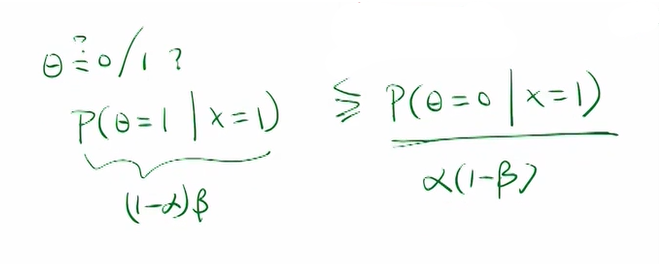 θ ≟ 0/1 ?
P(θ=1 | x=1) ⋛ P(θ=0 | x=1)
(1-α)β α(1-β)